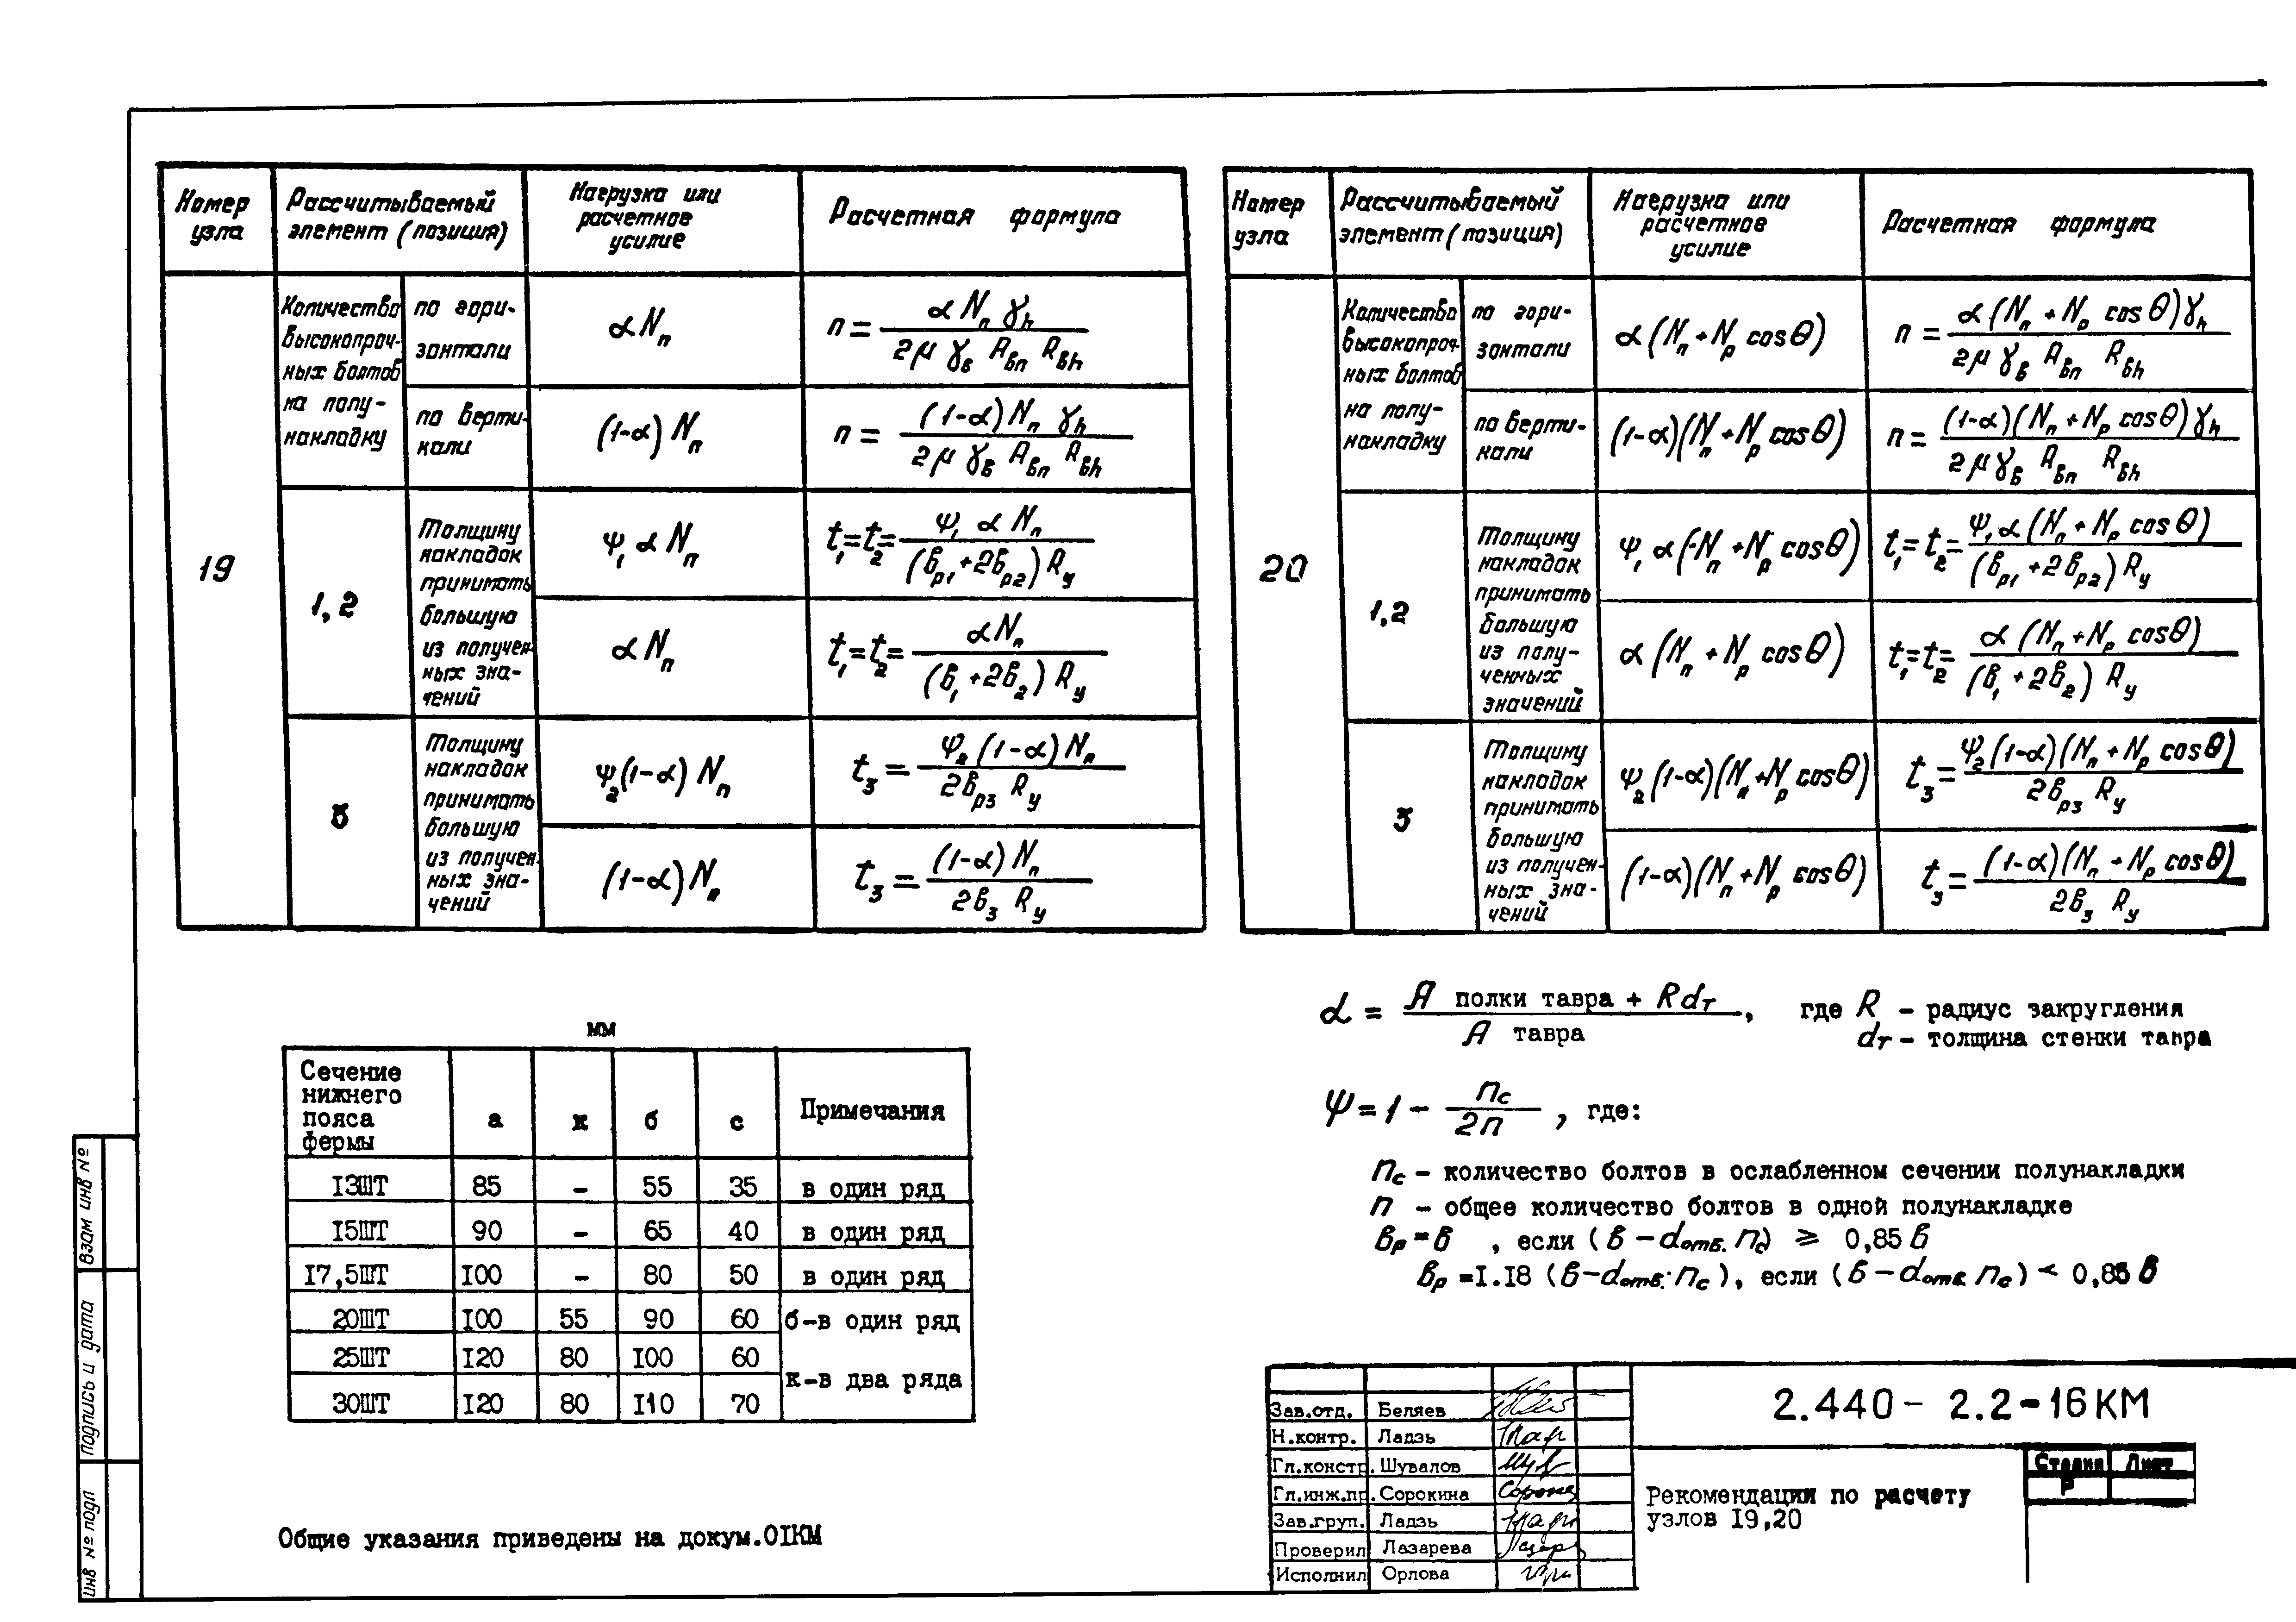 Номер узла
Рассчитываемый элемент (позиция)
Нагрузка или расчетное усилие
Расчетная формула
19
Количество высокопроч-
ных болтов
на полу-
накладку
по гори-
зонтали
αNп
n = αNп γh / 2μ γв Aвп Rвh
по верти-
кали
(1-α) Nп
n = (1-α) Nп γh / 2μ γв Aвп Rвh
1,2
Толщину
накладок
принимать
большую
из получен-
ных зна-
чений
ψ1 α Nп
t1=t2= ψ1 α Nп / (вp1+2вp2) Ry
α Nп
t1=t2= αNп / (в1+2в2) Ry
3
Толщину
накладок
принимать
большую
из получен-
ных зна-
чений
ψ2(1-α) Nп
t3 = ψ2 (1-α) Nп / 2вp3 Ry
(1-α)Nп
t3 = (1-α) Nп / 2в3 Ry
Номер узла
Рассчитываемый элемент (позиция)
Нагрузка или расчетное усилие
Расчетная формула
20
Количество
высокопроч-
ных болтов
на полу-
накладку
по гори-
зонтали
α(Nп+Nр cosθ)
n = α(Nп+Nр cosθ)γh / 2μ γв Aвп Rвh
по верти-
кали
(1-α)(Nп+Nр cosθ)
n = (1-α)(Nп+Nр cosθ)γh / 2μ γв Aвп Rвh
1,2
Толщину
накладок
принимать
большую
из полу-
ченных
значений
ψ1 α(Nп+Nр cosθ)
t1=t2= ψ1 α(Nп+Nр cosθ) / (вp1+2вp2) Ry
α(Nп+Nр cosθ)
t1=t2= α(Nп+Nр cosθ) / (в1+2в2) Ry
3
Толщину
накладок
принимать
большую
из получен-
ных зна-
чений
ψ2(1-α)(Nп+Nр cosθ)
t3= ψ2(1-α)(Nп+Nр cosθ) / 2вp3 Ry
(1-α)(Nп+Nр cosθ)
t3= (1-α)(Nп+Nр cosθ) / 2в3 Ry
мм
Сечение нижнего пояса фермы
а к б с Примечания
13ШТ 85 - 55 35 в один ряд
15ШТ 90 - 65 40 в один ряд
17,5ШТ 100 - 80 50 в один ряд
20ШТ 100 55 90 60 б-в один ряд
25ШТ 120 80 100 60
к-в два ряда
30ШТ 120 80 110 70
Общие указания приведены на докум.01КМ
α = A полки тавра + Rdт / A тавра, где R - радиус закругления
dт - толщина стенки тавра
ψ = 1 - nс / 2n , где:
nс - количество болтов в ослабленном сечении полунакладки
n - общее количество болтов в одной полунакладке
вр = в , если (в - dотв. nс) ≥ 0,85 в
вр =1.18 (в-dотв. nс), если (в-dотв. nс) < 0,85 в
Зав.отд. Беляев
Н.контр. Ладзь
Гл.констр. Шувалов
Гл.инж.пр. Сорокина
Зав.груп. Ладзь
Проверил Лазарева
Исполнил Орлова
2.440 - 2.2-16КМ
Рекомендации по расчету
узлов 19,20
Стадия Лист
Р
Взам инв №
Подпись и дата
Инв № подл